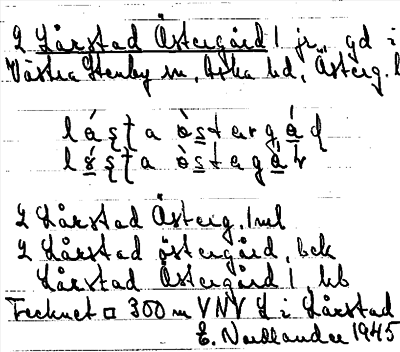 L Lårstad Östergård 1 jr, gd i
Västra Stenby sn, Aska hd, Österg. l
lås̩ta òstargád
lås̩ta òstagàr
L Lårstad Österg. 1 ml
L Lårstad östergård, bck
Lårstad Östergård 1, kb
Tecknet □ 300 m VNV L i Lårstad
E. Nordlander 1945